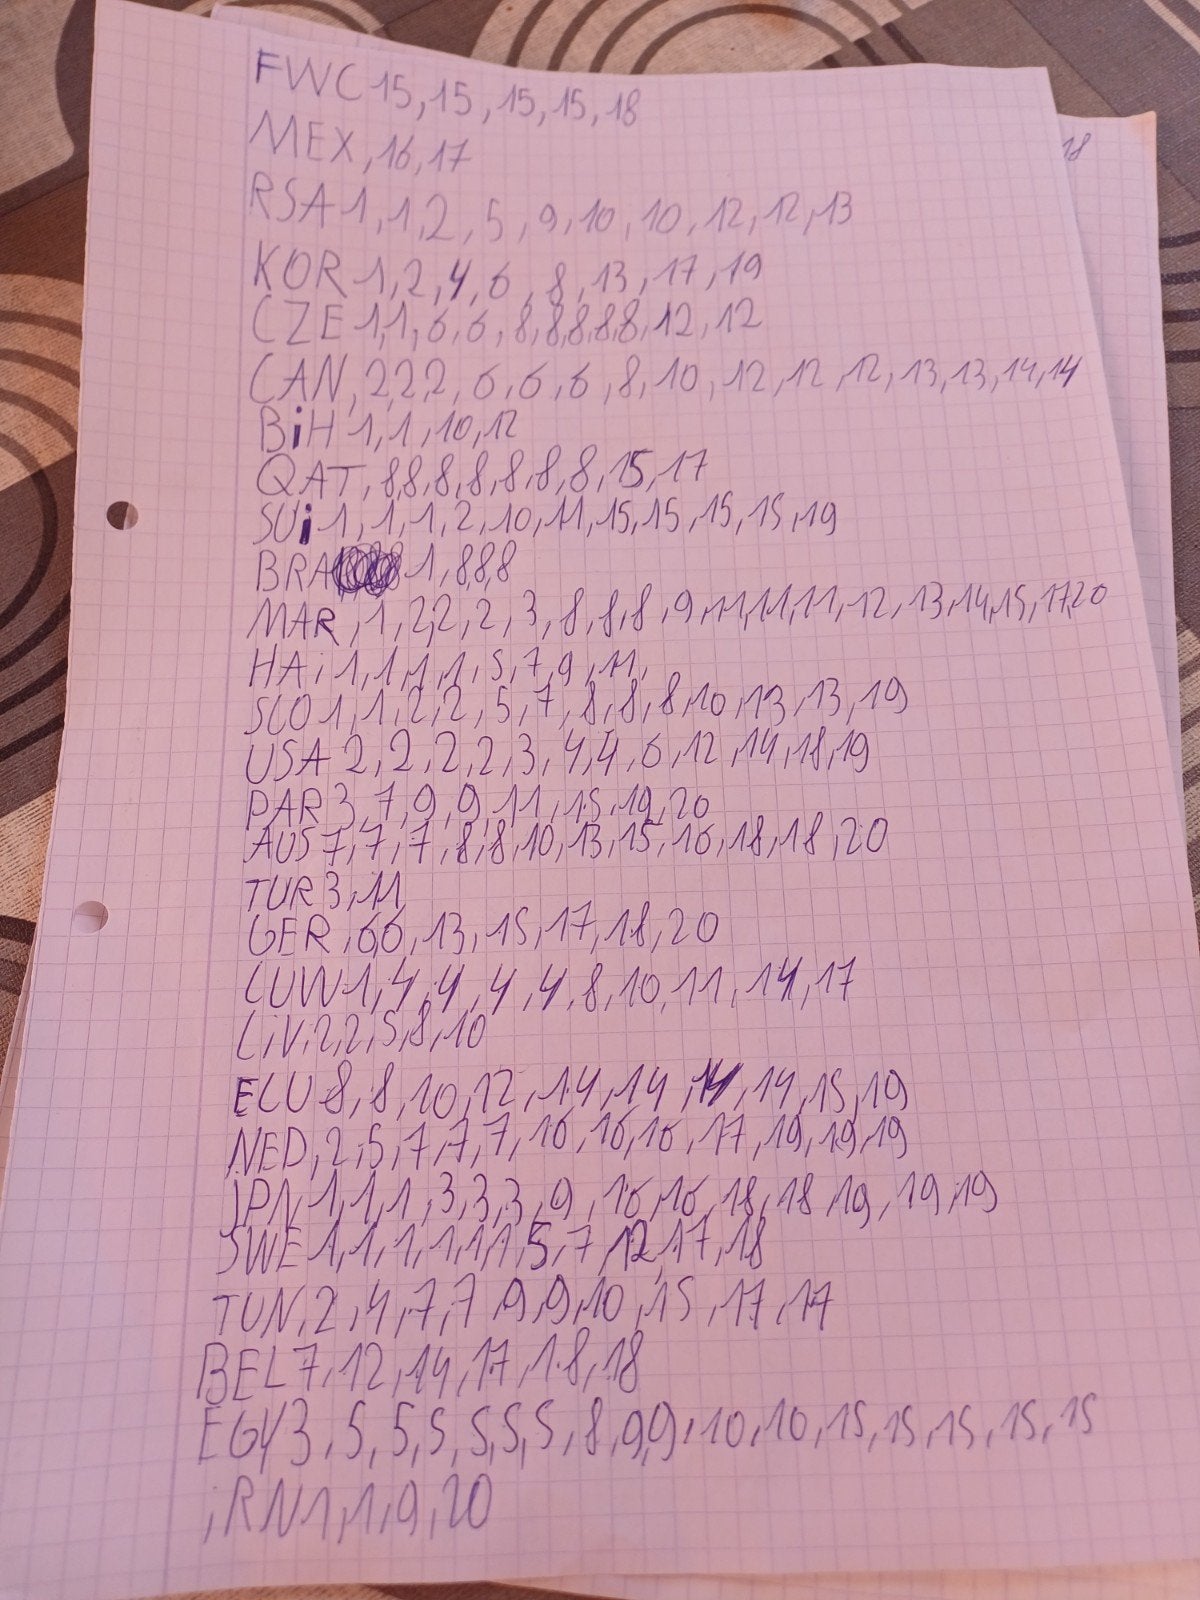 FWC 15,15,15,15,18
MEX,16,17
18
RSA 1,1,2,5,9,10,10,12,12,13
KOR 1,2,4,6,8,13,17,19
CZE 1,1,6,6,8,8,8,8,8,12,12
CAN,2,2,2,6,6,6,8,10,12,12,12,13,13,14,14
BiH 1,1,10,12
QAT,8,8,8,8,8,8,8,15,17
SUi 1,1,1,2,10,11,15,15,15,15,19
BRA 1,8,8,8
MAR,1,2,2,2,3,8,8,8,9,11,11,11,12,13,14,15,17,20
HAi 1,1,1,1,5,7,9,11,
SCO 1,1,2,2,5,7,8,8,8,10,13,13,19
USA 2,2,2,2,3,4,4,6,12,14,18,19
PAR 3,7,9,9,11,15,19,20
AUS 7,7,7,8,8,10,13,15,16,18,18,20
TUR 3,11
GER,6,6,13,15,17,18,20
CUW 1,4,4,4,4,8,10,11,14,17
CiV,2,2,5,8,10
ECU 8,8,10,12,14,14,14,14,15,19
NED,2,5,7,7,7,16,16,16,17,19,19,19
jPN,1,1,1,3,3,3,9,16,16,18,18,19,19,19
SWE 1,1,1,1,1,1,5,7,12,17,18
TUN,2,4,7,7,9,9,10,15,17,17
BEL 7,12,14,17,18,18
EGY 3,5,5,5,5,5,5,8,9,9,10,10,15,15,15,15,15
iRN 1,1,9,20